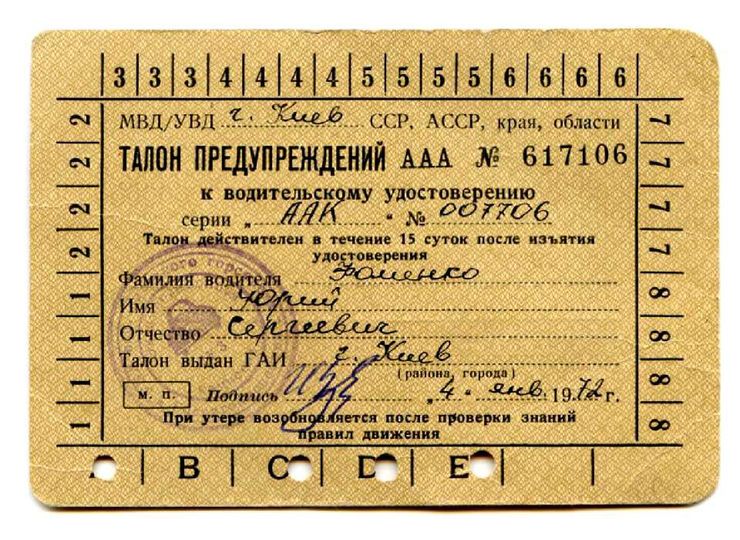 3 3 3 4 4 4 4 5 5 5 5 6 6 6 6
2 2 2 2 1 1 1 1
МВД/УВД г. Киев ССР, АССР, края, области
ТАЛОН ПРЕДУПРЕЖДЕНИЙ ААА № 617106
к водительскому удостоверению
серии „ ААК “ № 007706
Талон действителен в течение 15 суток после изъятия
удостоверения
Фамилия водителя Фоменко
Имя Юрий
Отчество Сергиевич
Талон выдан ГАИ г. Киев
(района, города)
м. п. Подпись „ 4 “ янв. 1972 г.
При утере возобновляется после проверки знаний
правил движения
7 7 7 7 8 8 8 8
B C D E